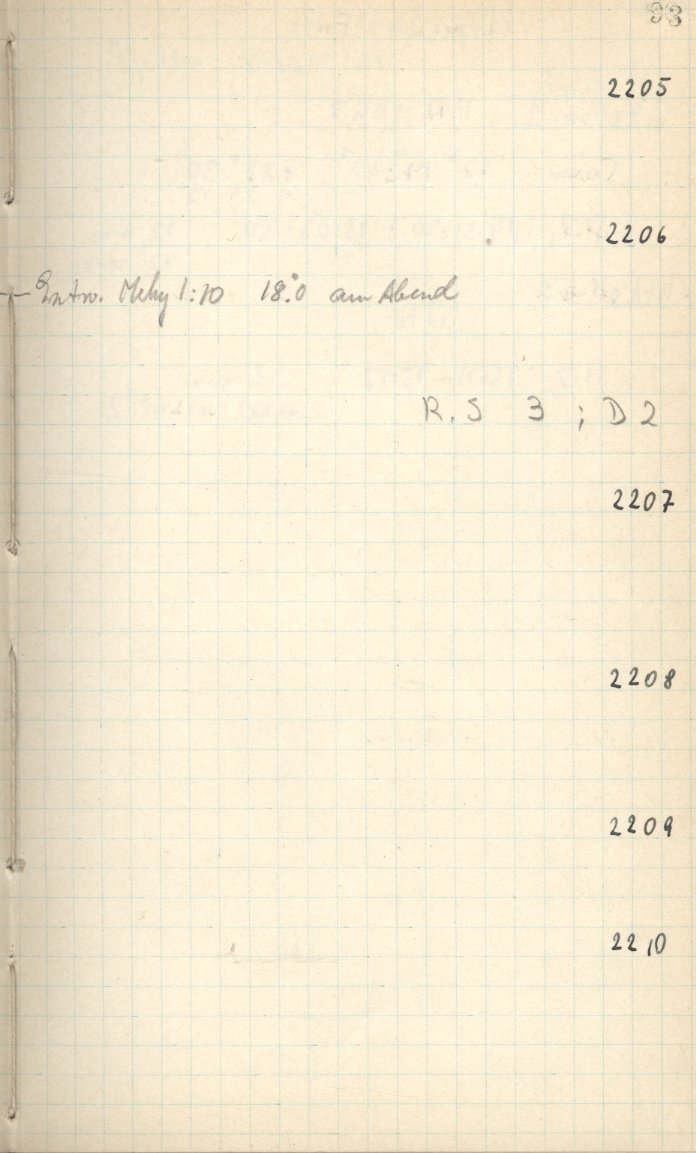 93
2205
2206
Entw. Mehy 1:10 18.°0 am Abend
R.S 3 ; D 2
2207
2208
2209
2210